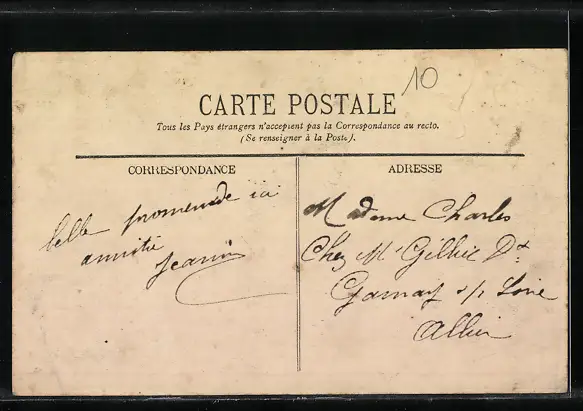 10
CARTE POSTALE
Tous les Pays étrangers n'acceptent pas la Correspondance au recto.
(Se renseigner à la Poste).
CORRESPONDANCE
ADRESSE
belle promenade ici
amitié
Madame Charles
Chez Mr
s/ Loire
Allier